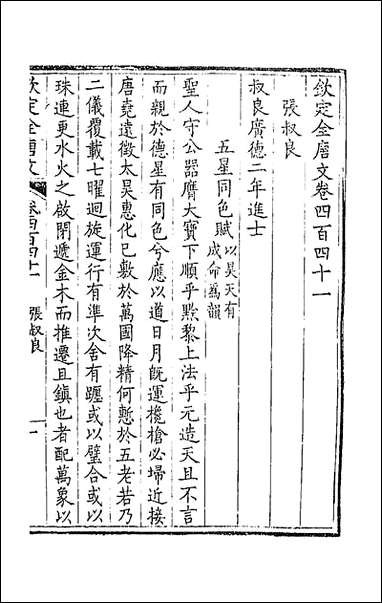 欽定全唐文卷四百四十一
張叔良
叔良廣德二年進士
五星同色賦以昊天有成命為韻
聖人守公器膺大寶下順乎黔黎上法乎元造天且不言
而親於德星有同色兮應以道日月旣運欃槍必埽近接
唐堯遠徵太昊惠化已敷於萬國降精何慙於五老若乃
二儀覆載七曜迴旋運行有準次舍有躔或以璧合或以
珠連更水火之啟閉遞金木而推遷且鎮也者配萬象以
欽定全唐文 卷四百四十一 張叔良 一